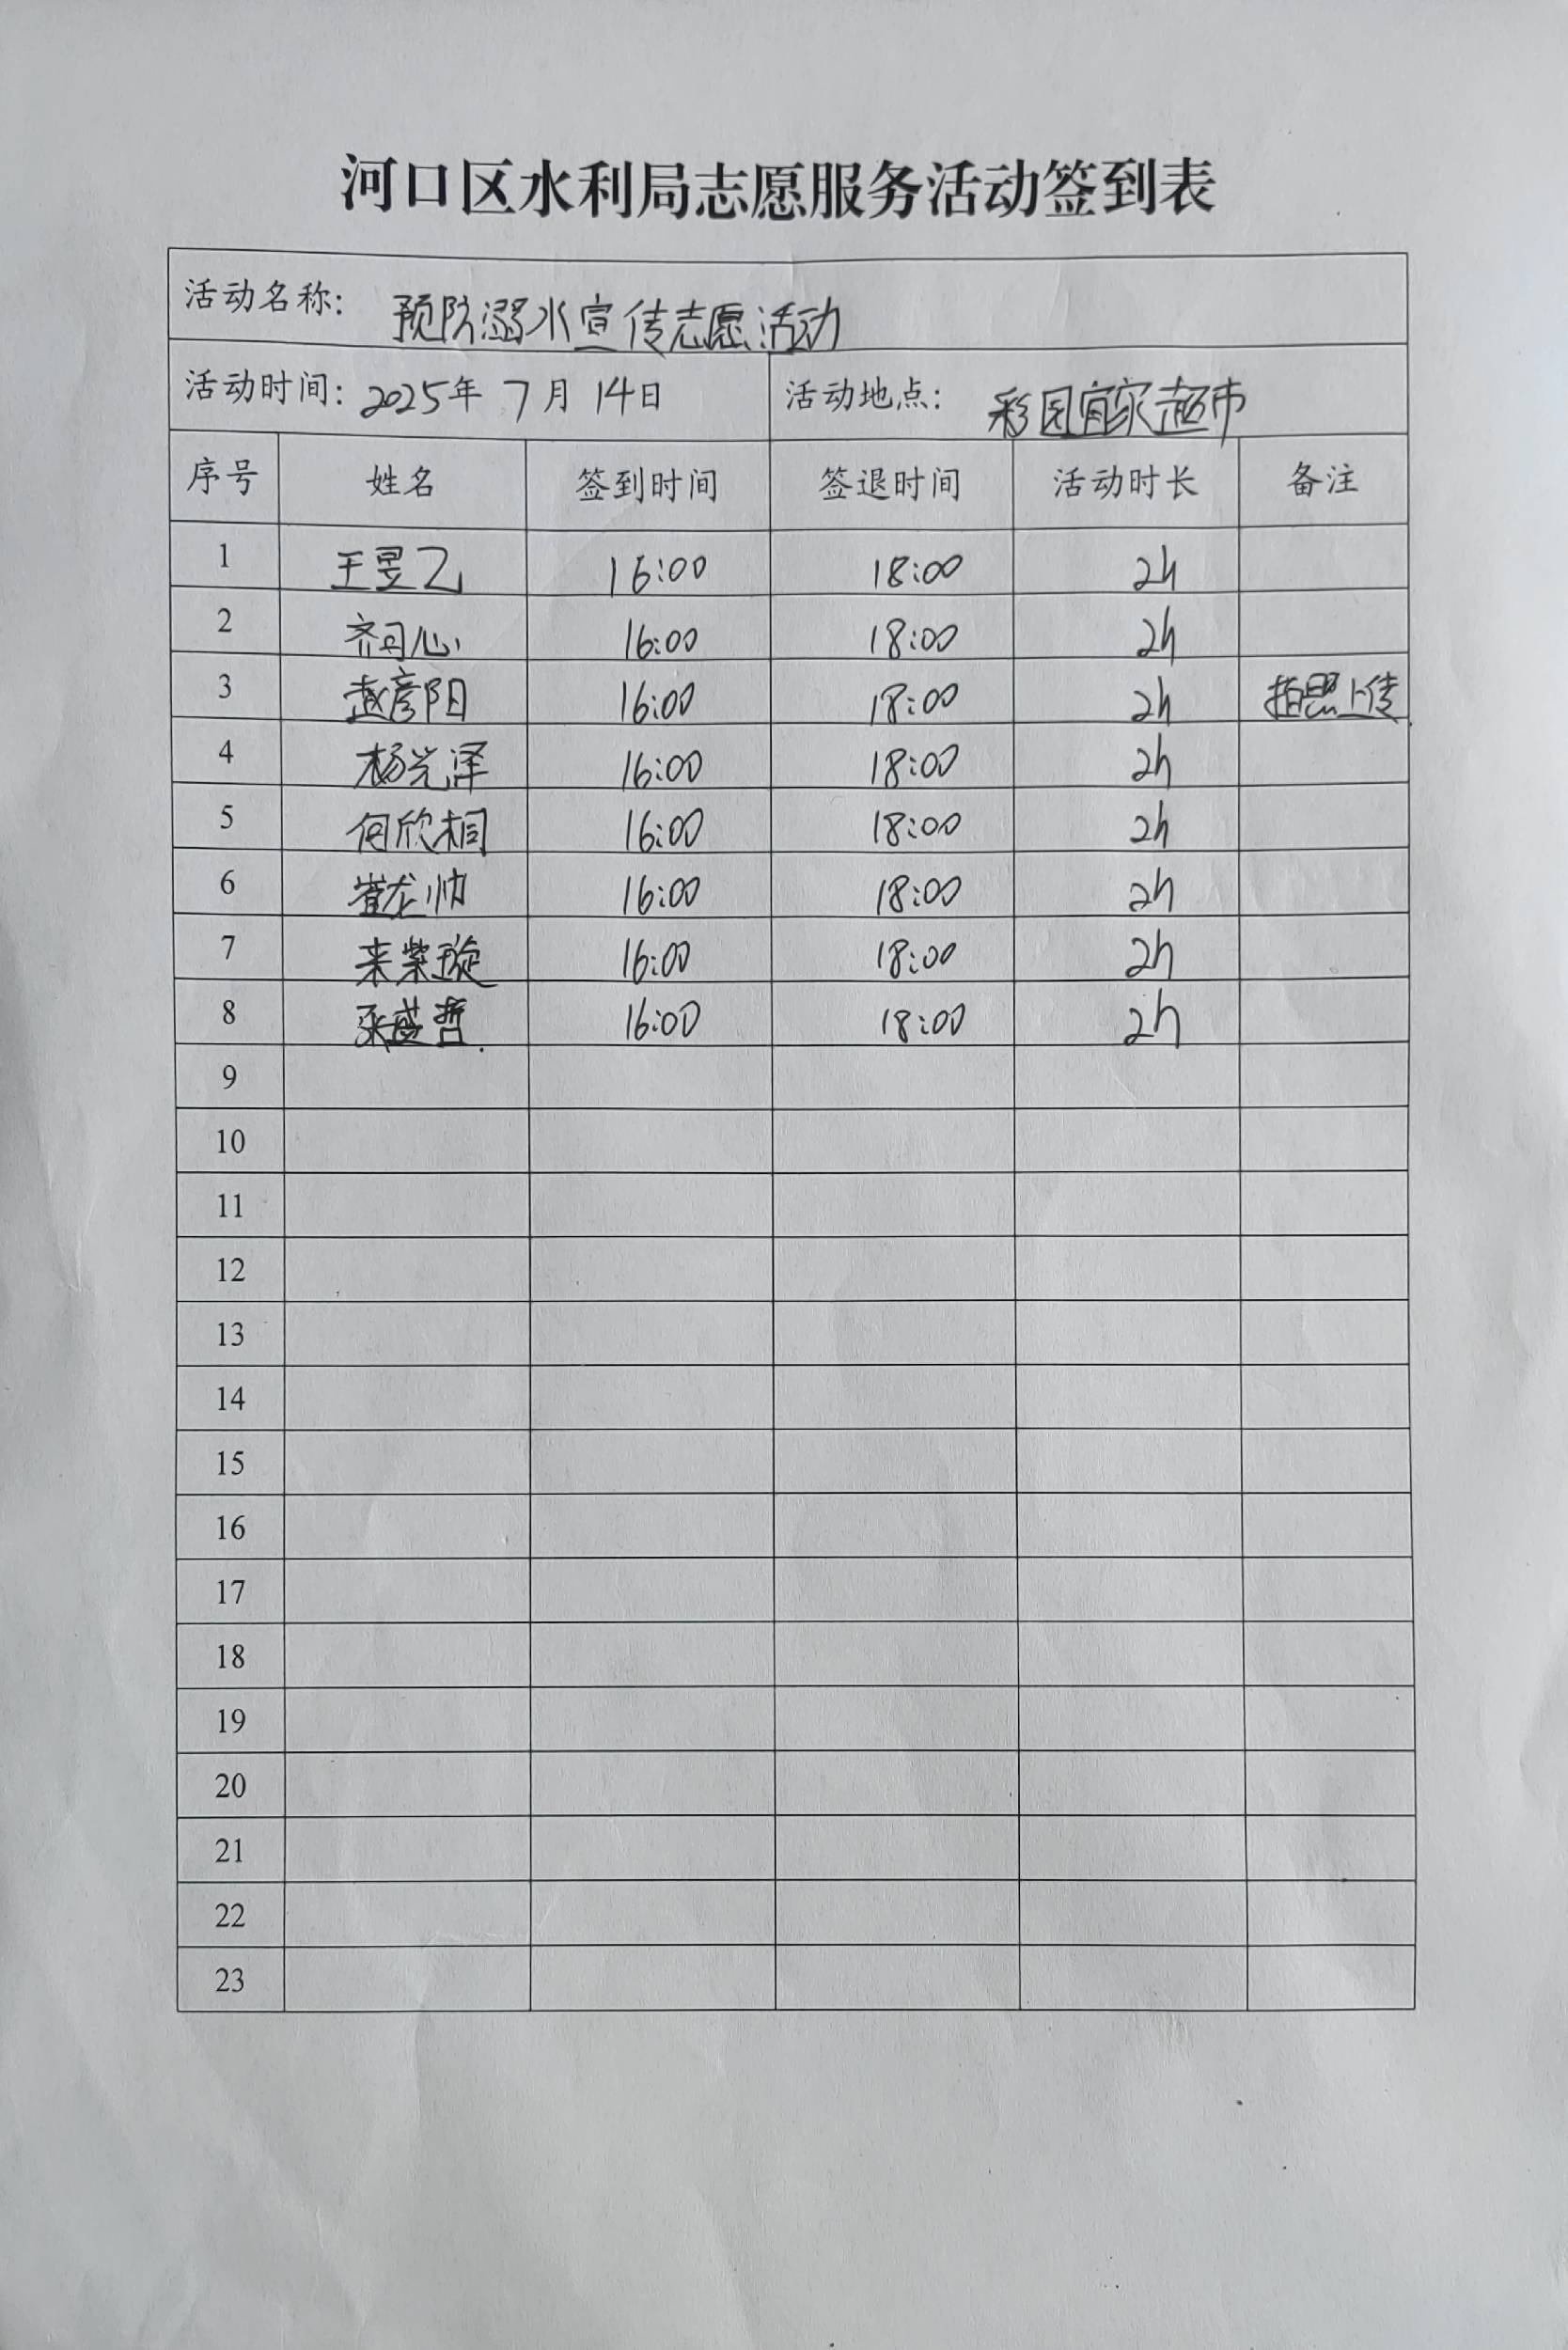 河口区水利局志愿服务活动签到表
活动名称: 预防溺水宣传志愿活动
活动时间: 2025年 7月 14日 活动地点: 彩园宜家超市
序号 姓名 签到时间 签退时间 活动时长 备注
1 王昱乙 16:00 18:00 2h
2 齐丹心 16:00 18:00 2h
3 赵彦阳 16:00 18:00 2h 拍照上传
4 杨光泽 16:00 18:00 2h
5 何欣桐 16:00 18:00 2h
6 崔龙帅 16:00 18:00 2h
7 来紫璇 16:00 18:00 2h
8 张盛哲 16:00 18:00 2h
9
10
11
12
13
14
15
16
17
18
19
20
21
22
23